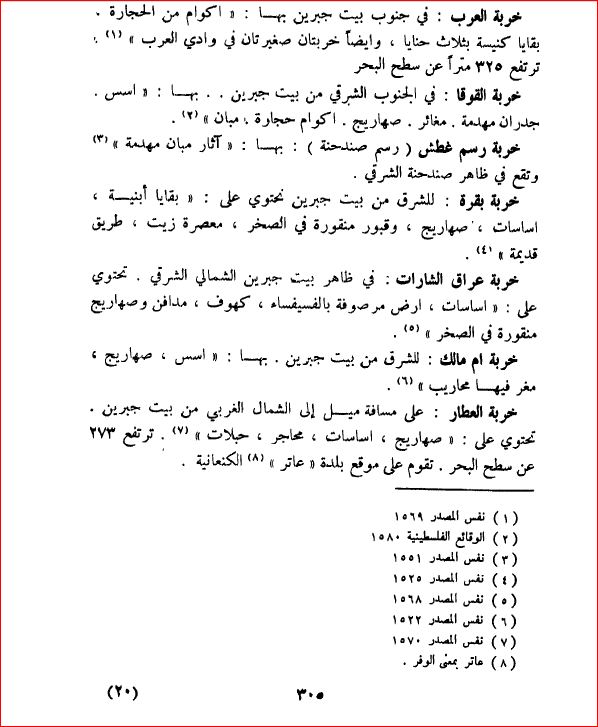 خربة العرب : في جنوب بيت جبرين بهـا : « اكوام من الحجارة .
بقايا كنيسة بثلاث حنايا ، وايضاً خربتان صغيرتان في وادي العرب » (١) .
ترتفع ٣٢٥ متراً عن سطح البحر
خربة القوقا : في الجنوب الشرقي من بيت جبرين . . بهـا : « اسس .
جدران مهدمة . مغائر . صهاريج . اكوام حجارة . مبان » (٢) .
خربة رسم غطش ( رسم صندحنة ) : بهـا : « آثار مبان مهدمة » (٣)
وتقع في ظاهر صندحنة الشرقي .
خربة بقرة : للشرق من بيت جبرين تحتوي على : « بقايا أبنيـة ،
اساسات ، صهاريج ، وقبور منقورة في الصخر ، معصرة زيت ، طريق
قديمة » (٤) .
خربة عراق الشارات : في ظاهر بيت جبرين الشمالي الشرقي . تحتوي
على : « اساسات ، ارض مرصوفة بالفسيفساء ، كهوف ، مدافن وصهاريج
منقورة في الصخر » (٥) .
خربة ام مالك : للشرق من بيت جبرين . بهـا : « اسس ، صهاريج ،
مغر فيهـا محاريب » (٦) .
خربة العطار : على مسافة ميـل إلى الشمال الغربي من بيت جبرين .
تحتوي على : « صهاريج ، اساسات ، محاجر ، حبلات » (٧) . ترتفع ٢٧٣
عن سطح البحر . تقوم على موقع بلدة « عاتر » (٨) الكنعانية .
(١) نفس المصدر ١٥٦٩
(٢) الوقائع الفلسطينية ١٥٨٠
(٣) نفس المصدر ١٥٥١
(٤) نفس المصدر ١٥٢٥
(٥) نفس المصدر ١٥٦٨
(٦) نفس المصدر ١٥٢٢
(٧) نفس المصدر ١٥٧٠
(٨) عاتر بمعنى الوفر .
٣٠٥
(٢٠)